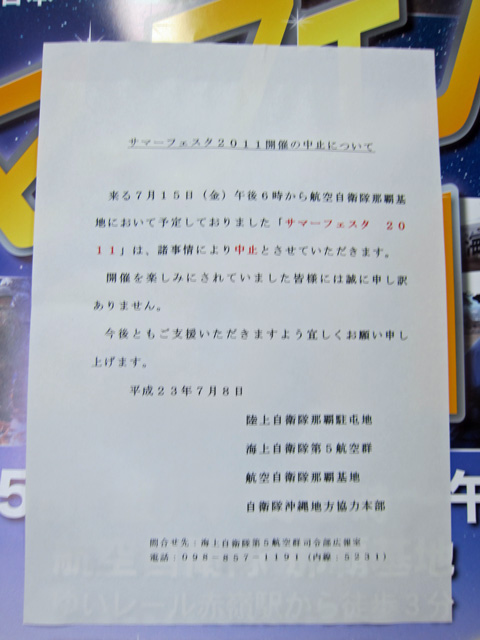 サマーフェスタ2011開催の中止について
来る7月15日（金）午後6時から航空自衛隊那覇基
地において予定しておりました「サマーフェスタ　20
11」は、諸事情により中止とさせていただきます。
開催を楽しみにされていました皆様には誠に申し訳
ありません。
今後ともご支援いただきますよう宜しくお願い申し
上げます。
平成23年7月8日
陸上自衛隊那覇駐屯地
海上自衛隊第5航空群
航空自衛隊那覇基地
自衛隊沖縄地方協力本部
問合せ先：海上自衛隊第5航空群司令部広報室
電話：098-857-1191（内線：5231）
ゆいレール赤嶺駅から徒歩3分